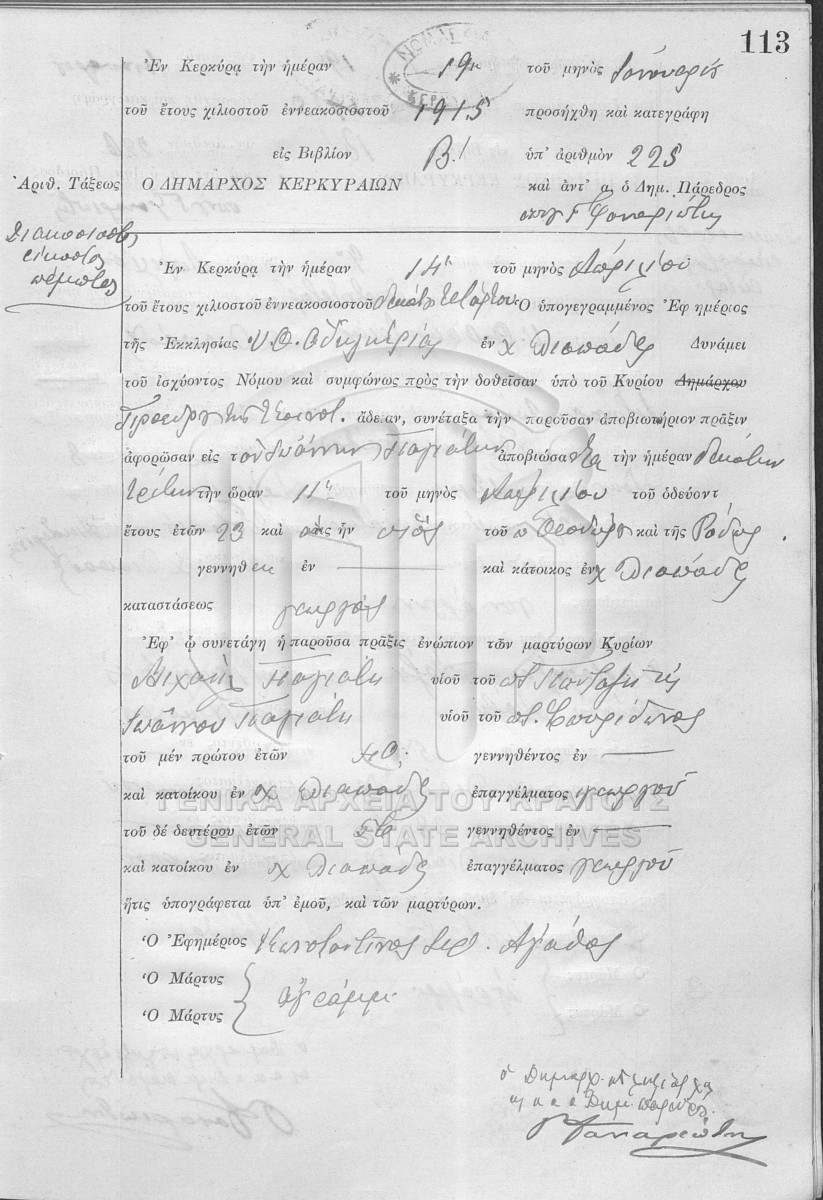 113
Ἐν Κερκύρᾳ τὴν ἡμέραν 19η τοῦ μηνὸς
τοῦ ἔτους χιλιοστοῦ ἐννεακοσιοστοῦ 1915 προσήχθη καὶ κατεγράφη
εἰς Βιβλίον Β! ὑπ' ἀριθμὸν 225
Ἀριθ. Τάξεως Ο ΔΗΜΑΡΧΟΣ ΚΕΡΚΥΡΑΙΩΝ καὶ ἀντ' α, ὁ Δημ. Πάρεδρος
Διακοσιοστὸς
εἰκοστὸς
πέμπτος
Ἐν Κερκύρᾳ τὴν ἡμέραν 14η τοῦ μηνὸς Ἀπριλίου
τοῦ ἔτους χιλιοστοῦ ἐννεακοσιοστοῦ δεκάτου τετάρτου Ὁ ὑπογεγραμμένος Ἐφημέριος
τῆς Ἐκκλησίας Υ. Θ. Ὁδηγητρίας ἐν χ Λιαπάδες Δυνάμει
τοῦ ἰσχύοντος Νόμου καὶ συμφώνως πρὸς τὴν δοθεῖσαν ὑπὸ τοῦ Κυρίου Δημάρχου
Προέδρου τῆς Κοινοτ. ἄδειαν, συνέταξα τὴν παροῦσαν ἀποβιωτήριον πρᾶξιν
ἀφορῶσαν εἰς τὸν Ἰωάννην ἀποβιώσαντα τὴν ἡμέραν δεκάτην
τρίτην τὴν ὥραν 11η τοῦ μηνὸς Ἀπριλίου τοῦ ὁδεύοντ
ἔτους ἐτῶν 23 καὶ ὅστις ἦν υἱὸς τοῦ π Θεοδώρου καὶ τῆς Ρόδως.
γεννηθεὶς ἐν — καὶ κάτοικος ἐν χ Λιαπάδες
καταστάσεως γεωργὸς
Ἐφ' ᾧ συνετάγη ἡ παροῦσα πρᾶξις ἐνώπιον τῶν μαρτύρων Κυρίων
Μιχαὴλ υἱοῦ τοῦ
Ἰωάννου υἱοῦ τοῦ π. Σπυρίδωνος
τοῦ μέν πρώτου ἐτῶν γεννηθέντος ἐν —
καὶ κατοίκου ἐν χ Λιαπάδες ἐπαγγέλματος γεωργοῦ
ΓΕΝΙΚΑ ΑΡΧΕΙΑ ΤΟΥ ΚΡΑΤΟΥΣ
τοῦ δέ δευτέρου ἐτῶν γεννηθέντος ἐν —
GENERAL STATE ARCHIVES
καὶ κατοίκου ἐν χ Λιαπάδες ἐπαγγέλματος γεωργοῦ
ἥτις ὑπογράφεται ὑπ' ἐμοῦ, καὶ τῶν μαρτύρων.
Ὁ Ἐφημέριος Κωνσταντῖνος Ἀγάθος
Ὁ Μάρτυς
ἀγράμμ.
Ὁ Μάρτυς